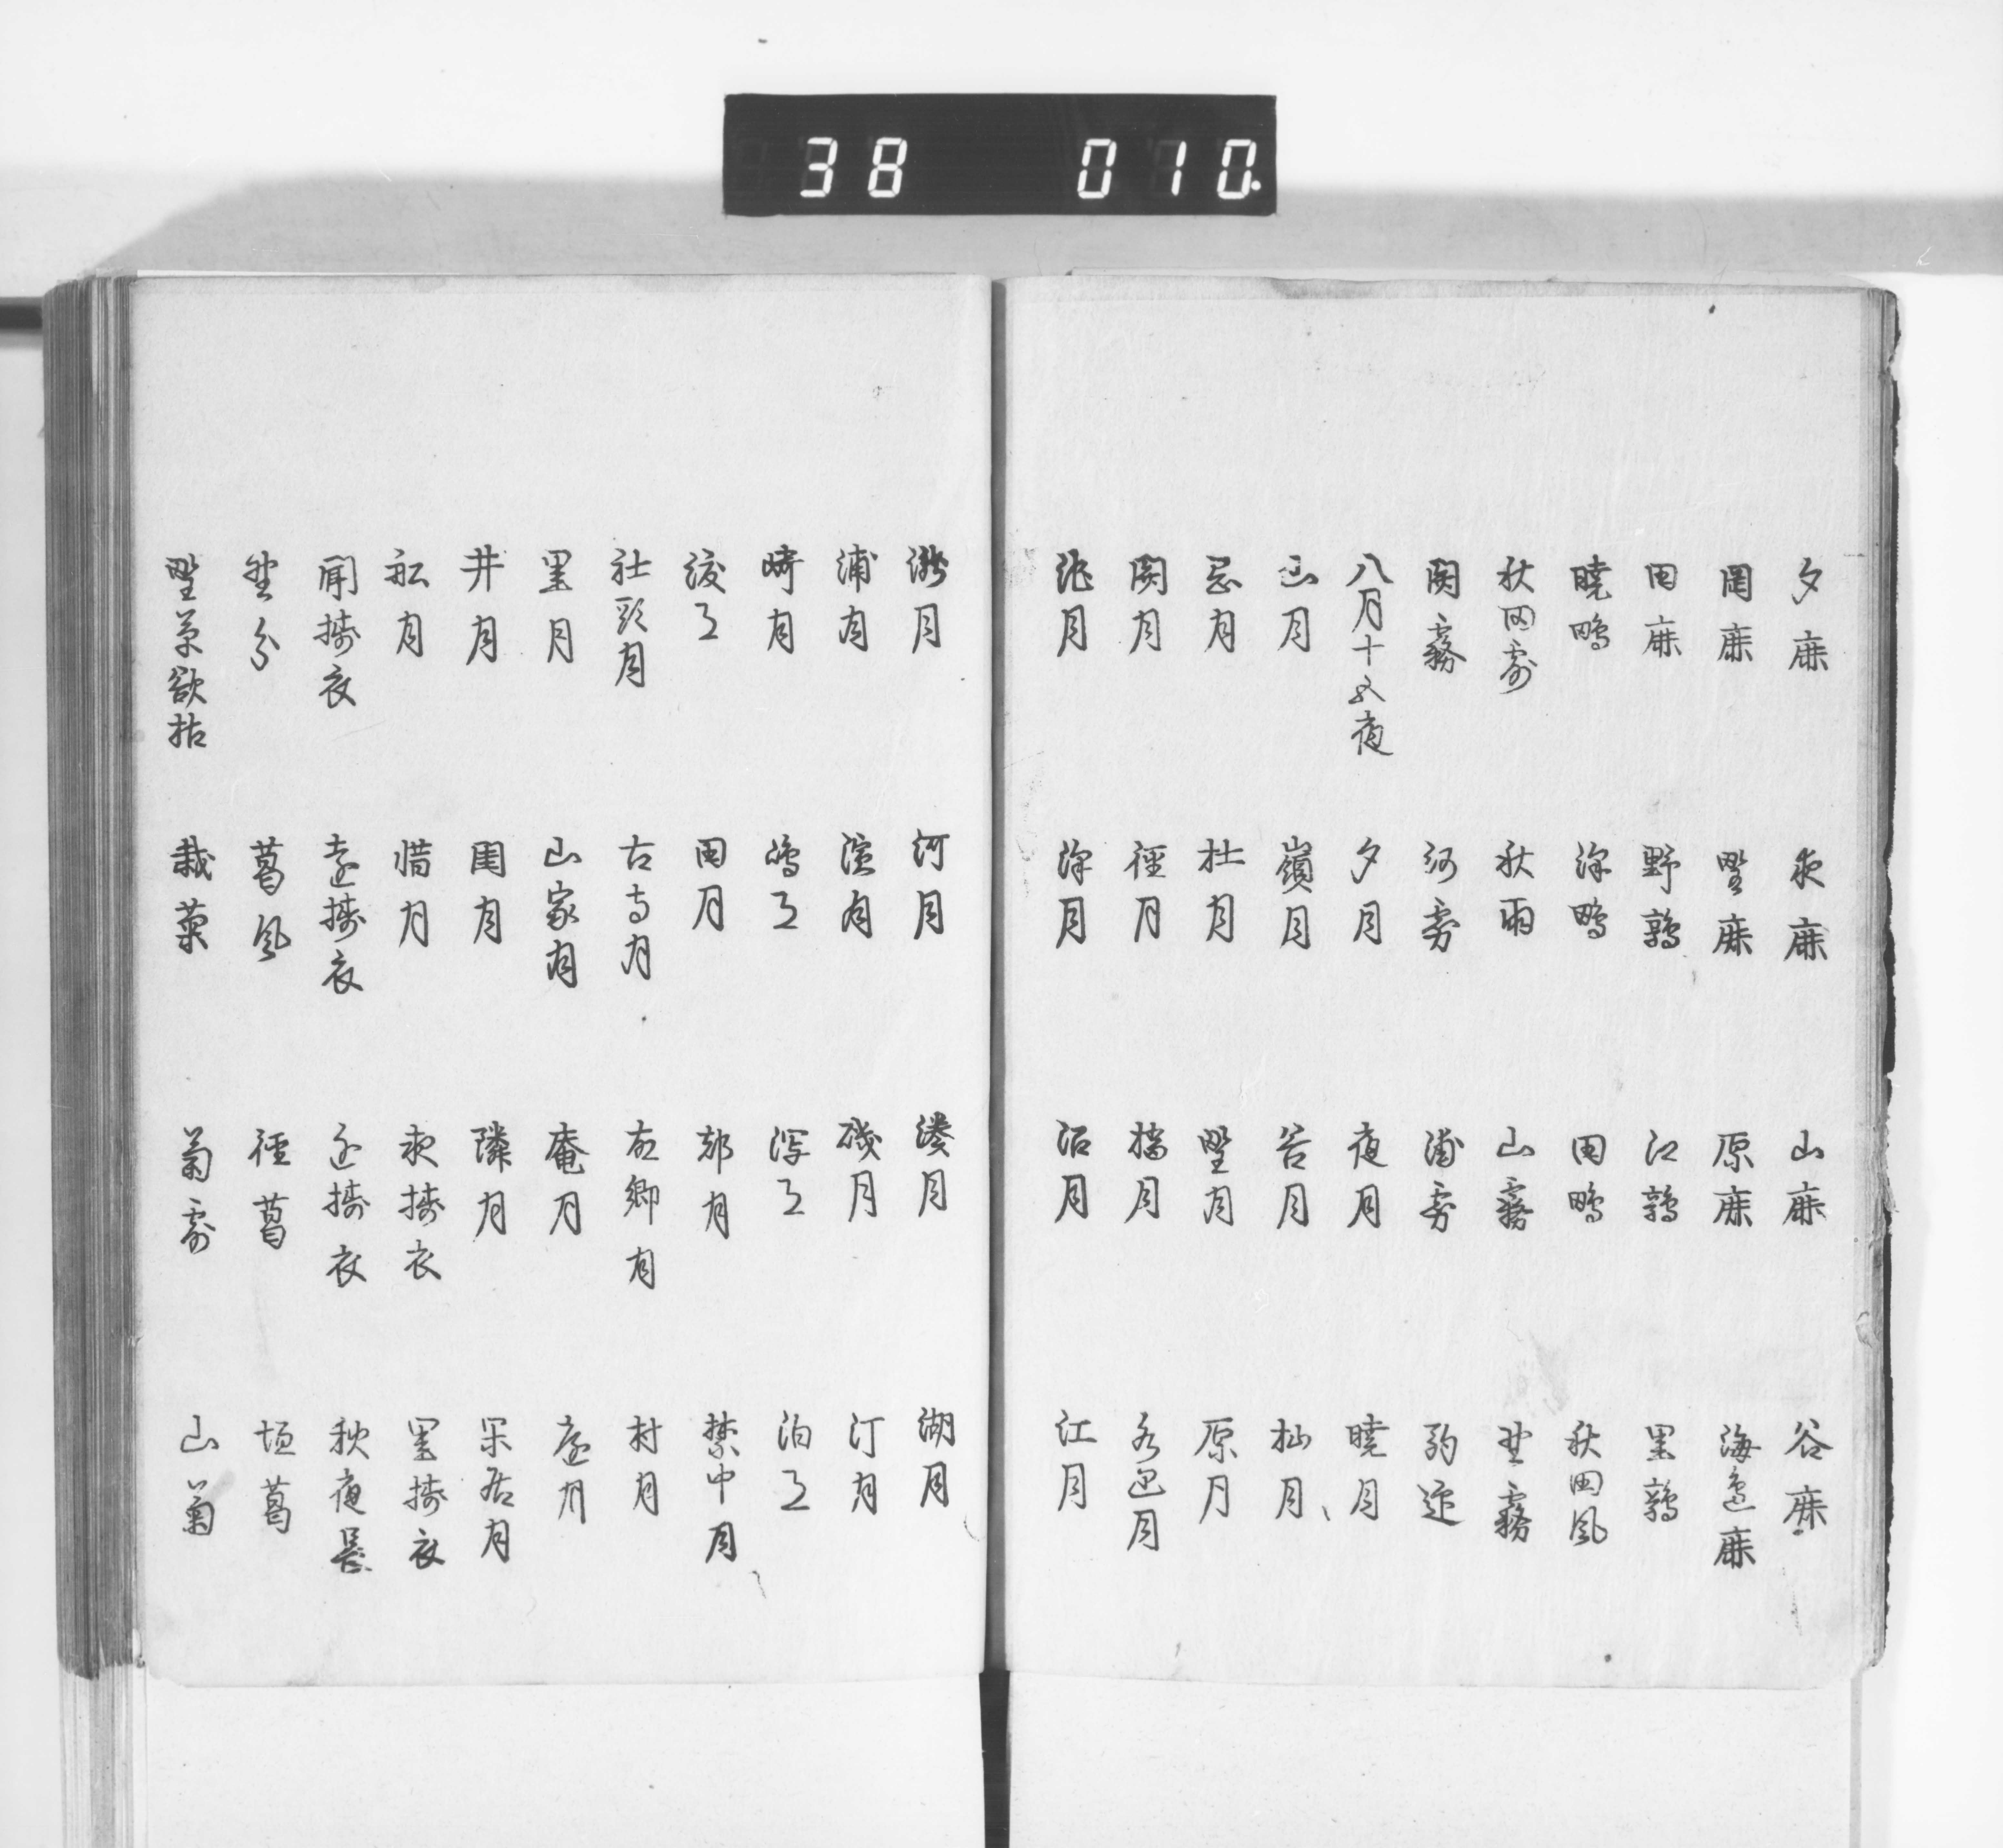 38 010
夕鹿 夜鹿 山鹿 谷鹿
岡鹿 野鹿 原鹿 海邊鹿
田鹿 野鶉 江鶉 里鶉
曉鴫 深鴫 田鴫 秋田風
秋田露 秋雨 山霧 野霧
関霧 河霧 浦霧 駒迎
八月十五夜 夕月 夜月 曉月
山月 嶺月 谷月 杣月
忌月 杜月 野月 原月
関月 徑月 橋月 水辺月
池月 澤月 沼月 江月
瀧月 河月 湊月 湖月
浦月 濱月 磯月 汀月
崎月 嶋月 浮月 泊月
渡月 田月 都月 禁中月
社頭月 古寺月 故郷月 村月
里月 山家月 庵月 庭月
井月 閨月 隣月 閑居月
舩月 惜月 夜擣衣 里擣衣
聞擣衣 遠擣衣 近擣衣 秋夜長
野分 葛風 徑葛 垣葛
野草欲枯 栽菊 菊露 山菊